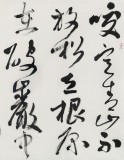 咬定青山不
放松立根原
在破巖中